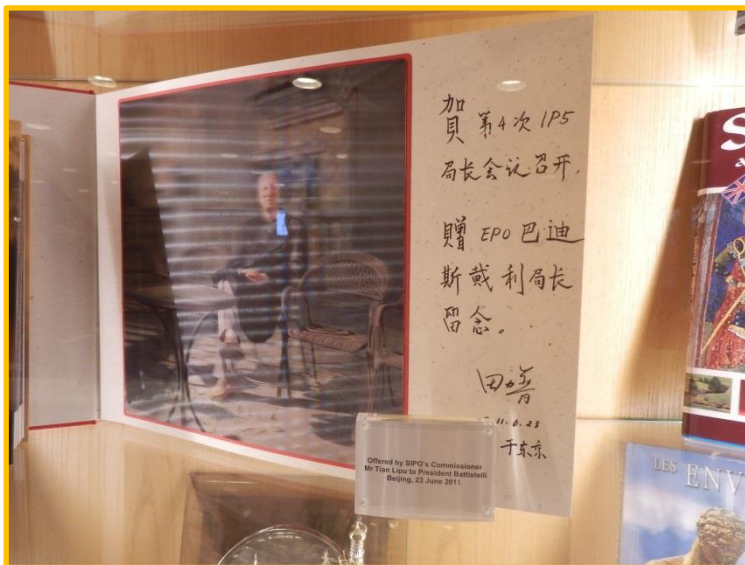 賀 第4次 IP5
局长会议召开,
贈 EPO 巴迪
斯戴利局长
留念。
田力普
11.6.23
于东京
Offered by SIPO's Commissioner
Mr Tian Lipu to President Battistelli
Beijing, 23 June 2011
S
LES ENV